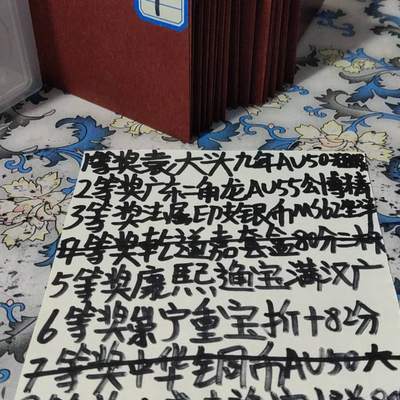 1等奖袁大头九年AU50
2等奖广东二角龙AU55公博精
3等奖法属印支银币MS62坐洋
4等奖乾道嘉套金80分三枚
5等奖康熙通宝满汉广
6等奖崇宁重宝折十82分
7等奖中华铜币AU50大